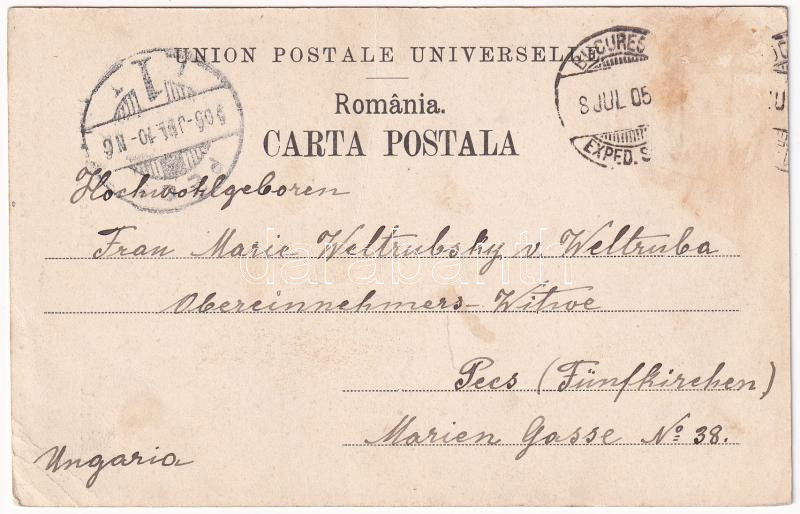 UNION POSTALE UNIVERSELLE
România.
CARTA POSTALA
8 JUL 05
EXPED. S
905 JUL. 10 N 6
Hochwohlgeboren
Frau Marie Weltrubsky v. Weltruba
Obereinnehmers-Witwe
Pecs (Fünfkirchen)
Marien Gasse No 38.
Ungaria
darabanth